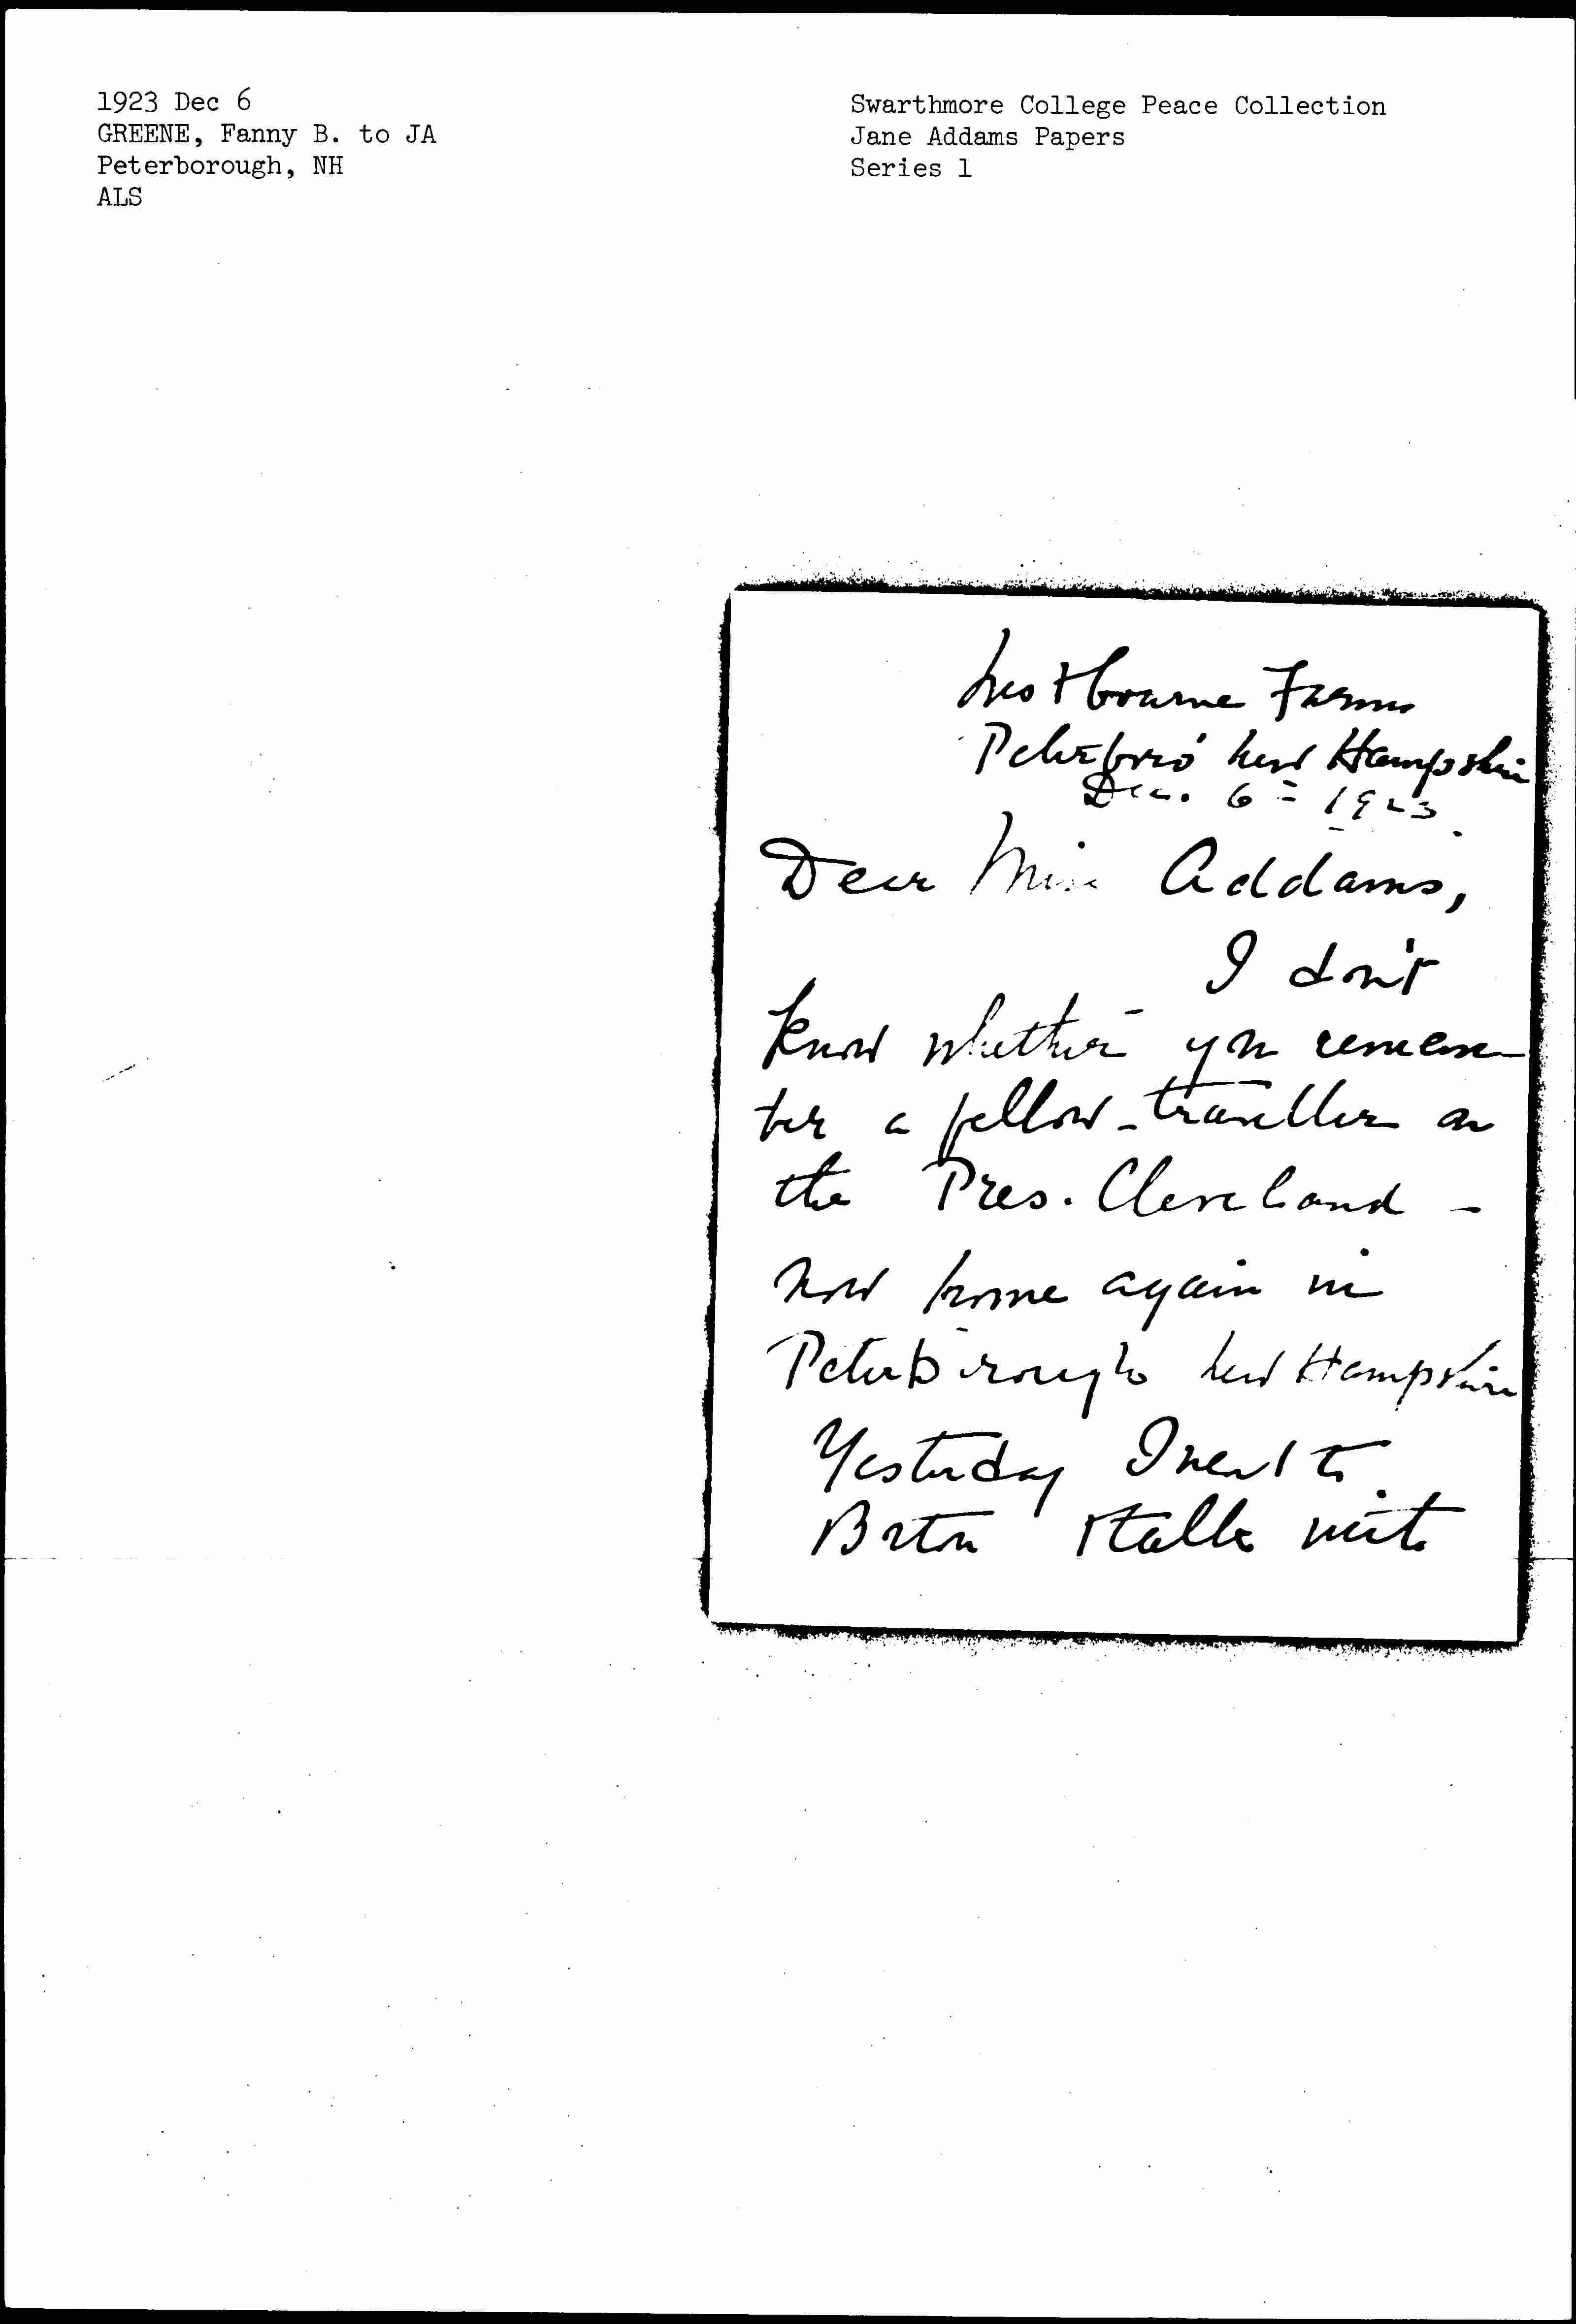 1923 Dec 6
GREENE, Fanny B. to JA
Peterborough, NH
ALS
Swarthmore College Peace Collection
Jane Addams Papers
Series 1
Farm
Peterboro' New Hampshire
Dec. 6 = 1923.
Dear Miss Addams,
I don't
know whether you remem-
ber a fellow-traveller on
the Pres. Cleveland -
now home again in
Peterborough New Hampshire
Yesterday I went to
Boston & talk with